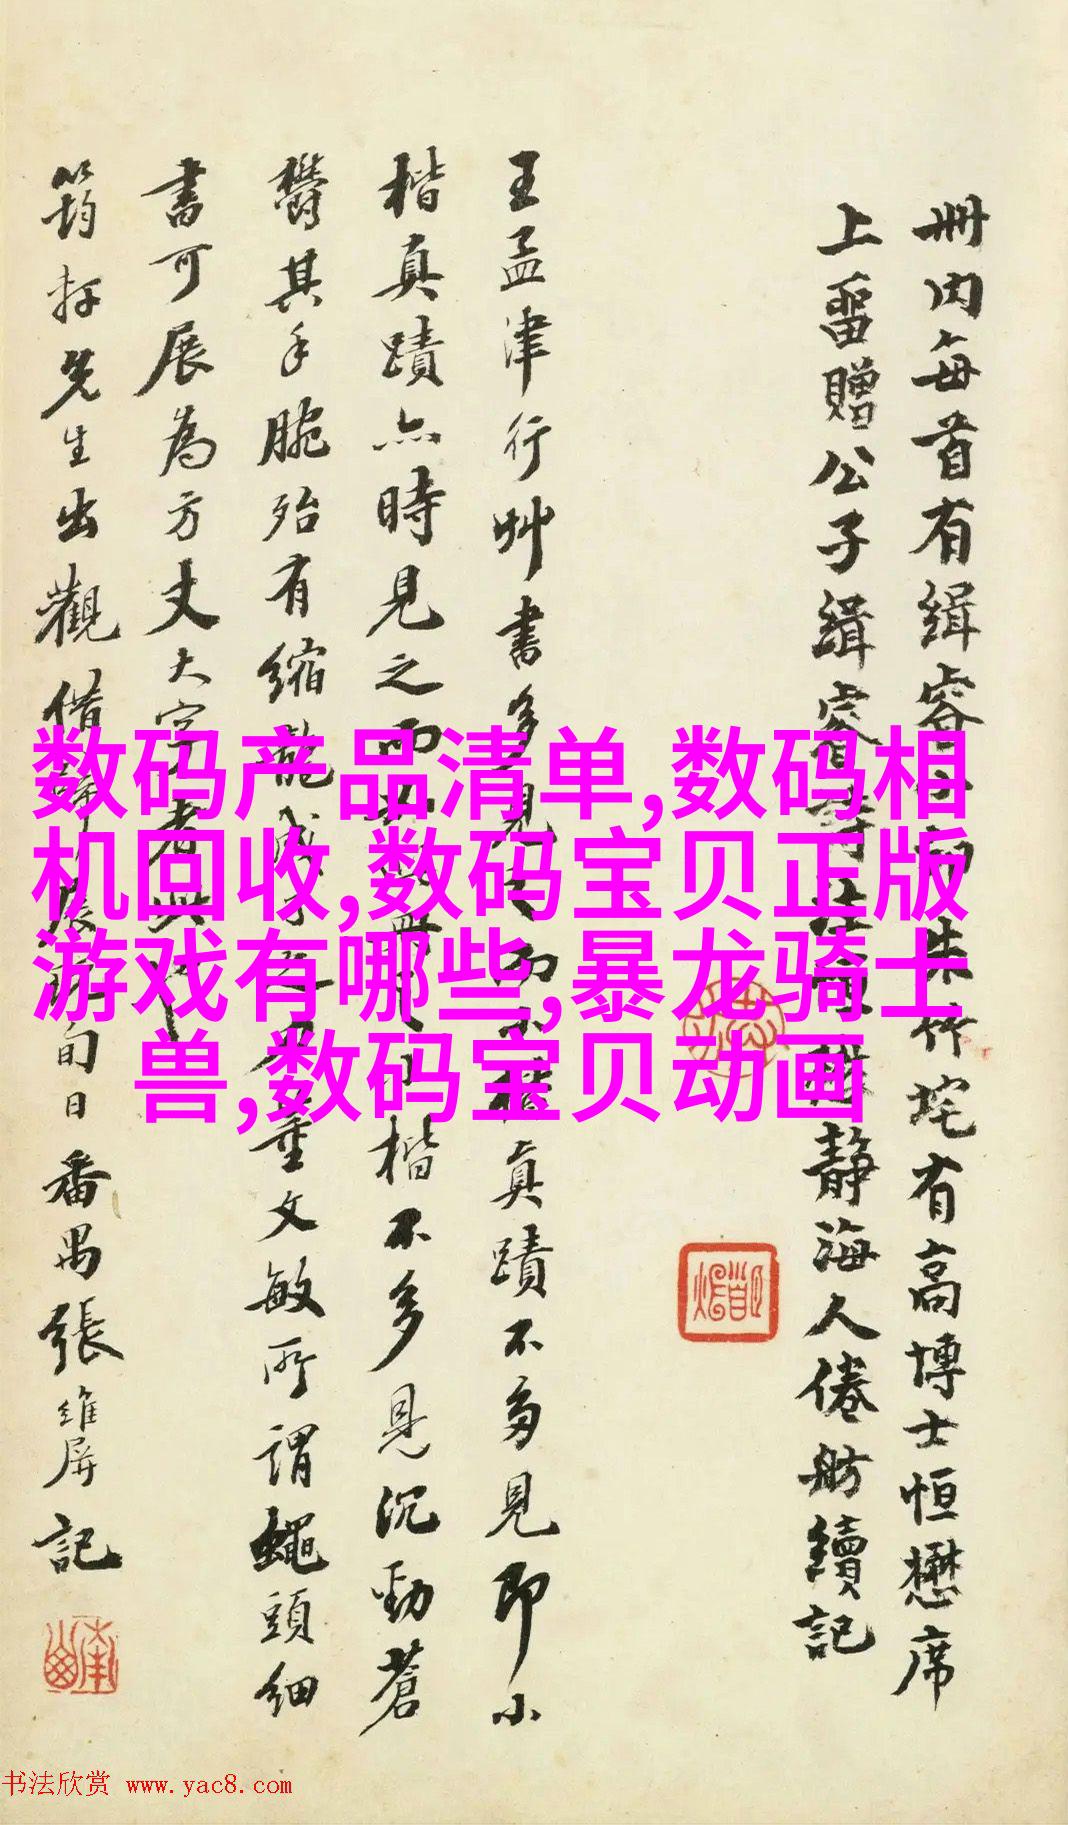 册内每首有緝容
朱竹垞有高博士恒懋席
上留贈公子緝容詩
静海人倦舫續記
王孟津行艸書多見
真蹟不多見即小
楷真蹟亦時見之而
小楷不多見沉勁蒼
欝其手腕殆有縮龍成寸之
董文敏所謂蠅頭細
書可展為方丈大字者
筠
先生出觀借
旬日番禺張維屏記
数码产品清单,数码相
机回收,数码宝贝正版
游戏有哪些,暴龙骑士
兽,数码宝贝动画
书法欣赏 www.yac8.com